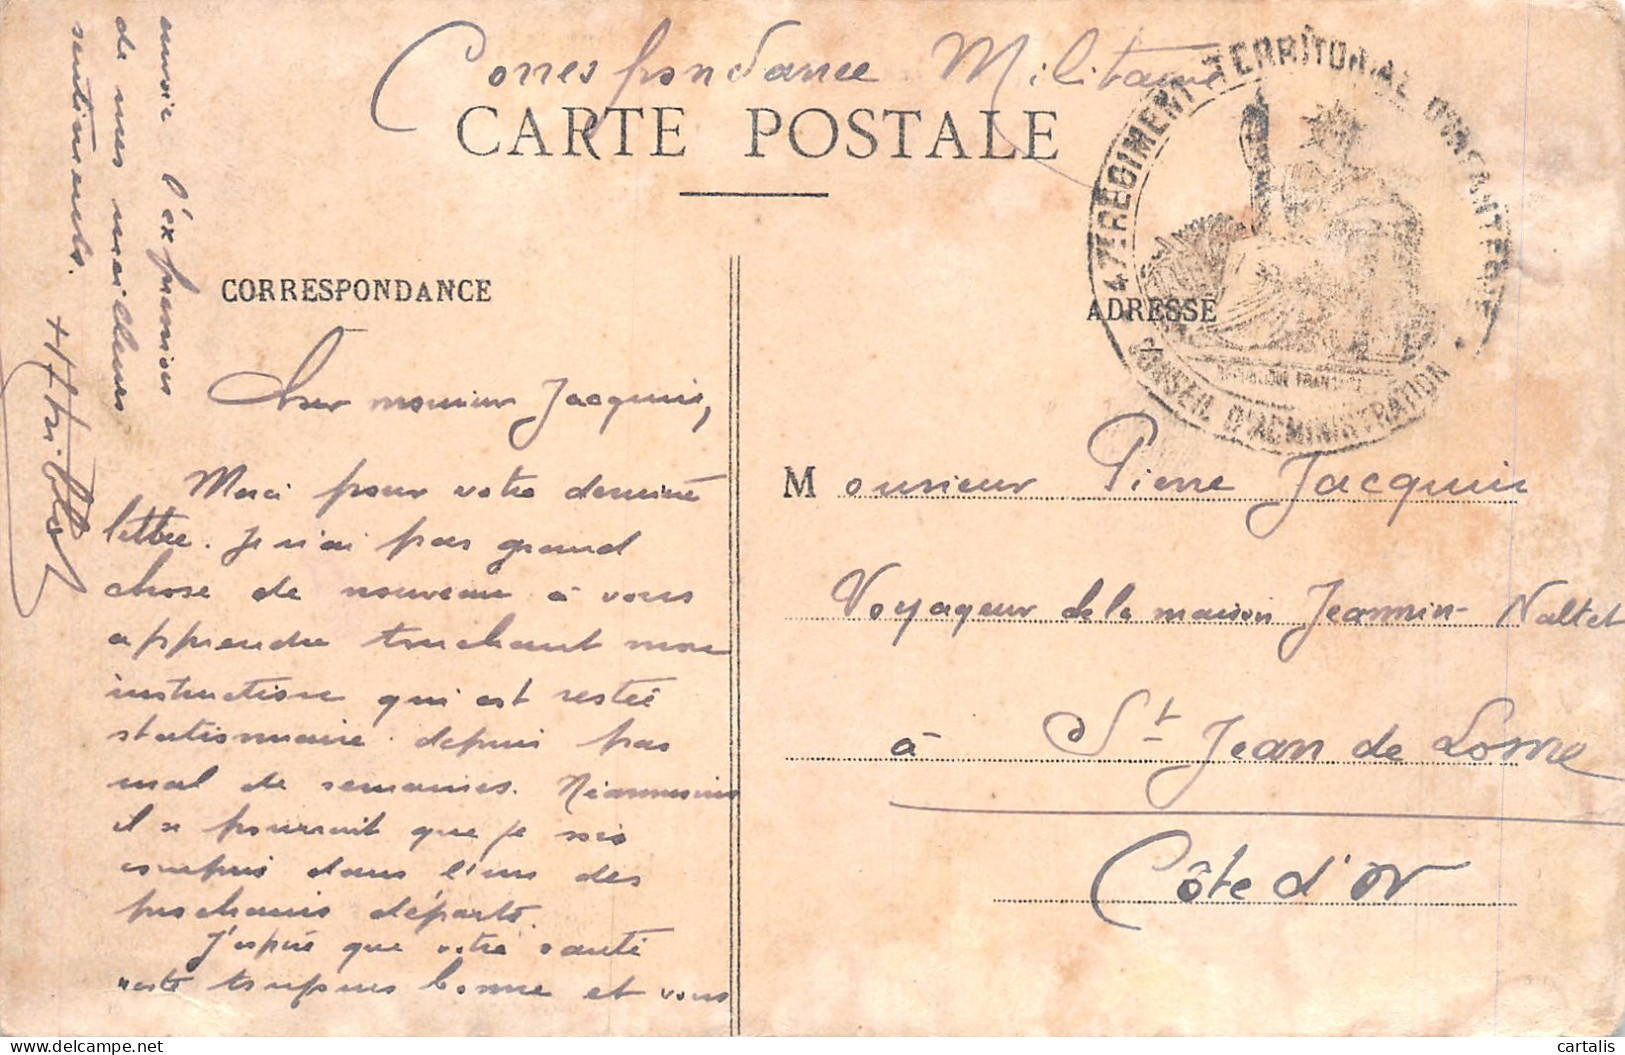 Correspondance Militaire
CARTE POSTALE
47E REGIMENT TERRITORIAL D'INFANTERIE
CONSEIL D'ADMINISTRATION
REPUBLIQUE FRANÇAISE
CORRESPONDANCE
ADRESSE
Cher monsieur Jacquin,
Merci pour votre dernière
lettre. Je n'ai pas grand
chose de nouveau à vous
apprendre touchant mon
instruction qui est restée
stationnaire depuis pas
mal de semaines. Néanmoins
il se pourrait que je sois
compris dans l'un des
prochains départs.
J'espère que votre santé
reste toujours bonne et vous
envoie l'expression
de mes meilleurs
sentiments.
Monsieur Pierre Jacquin
Voyageur de la maison Jeannin-Naltet
à St Jean de Losne
Côte d'Or
cartalis